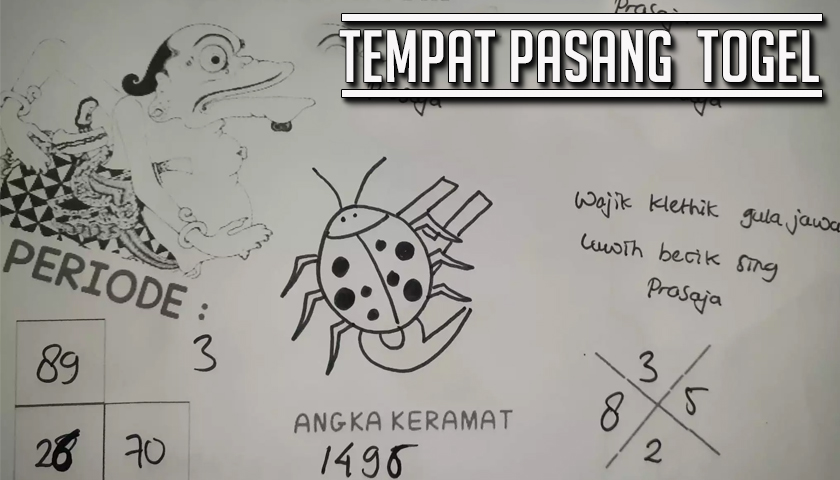 Prasaja
TEMPAT PASANG TOGEL
Prasaja
Wajik klethik gula jawa
Luwih becik sing
Prasaja
PERIODE :
3
89
70
ANGKA KERAMAT
3
8 5
2